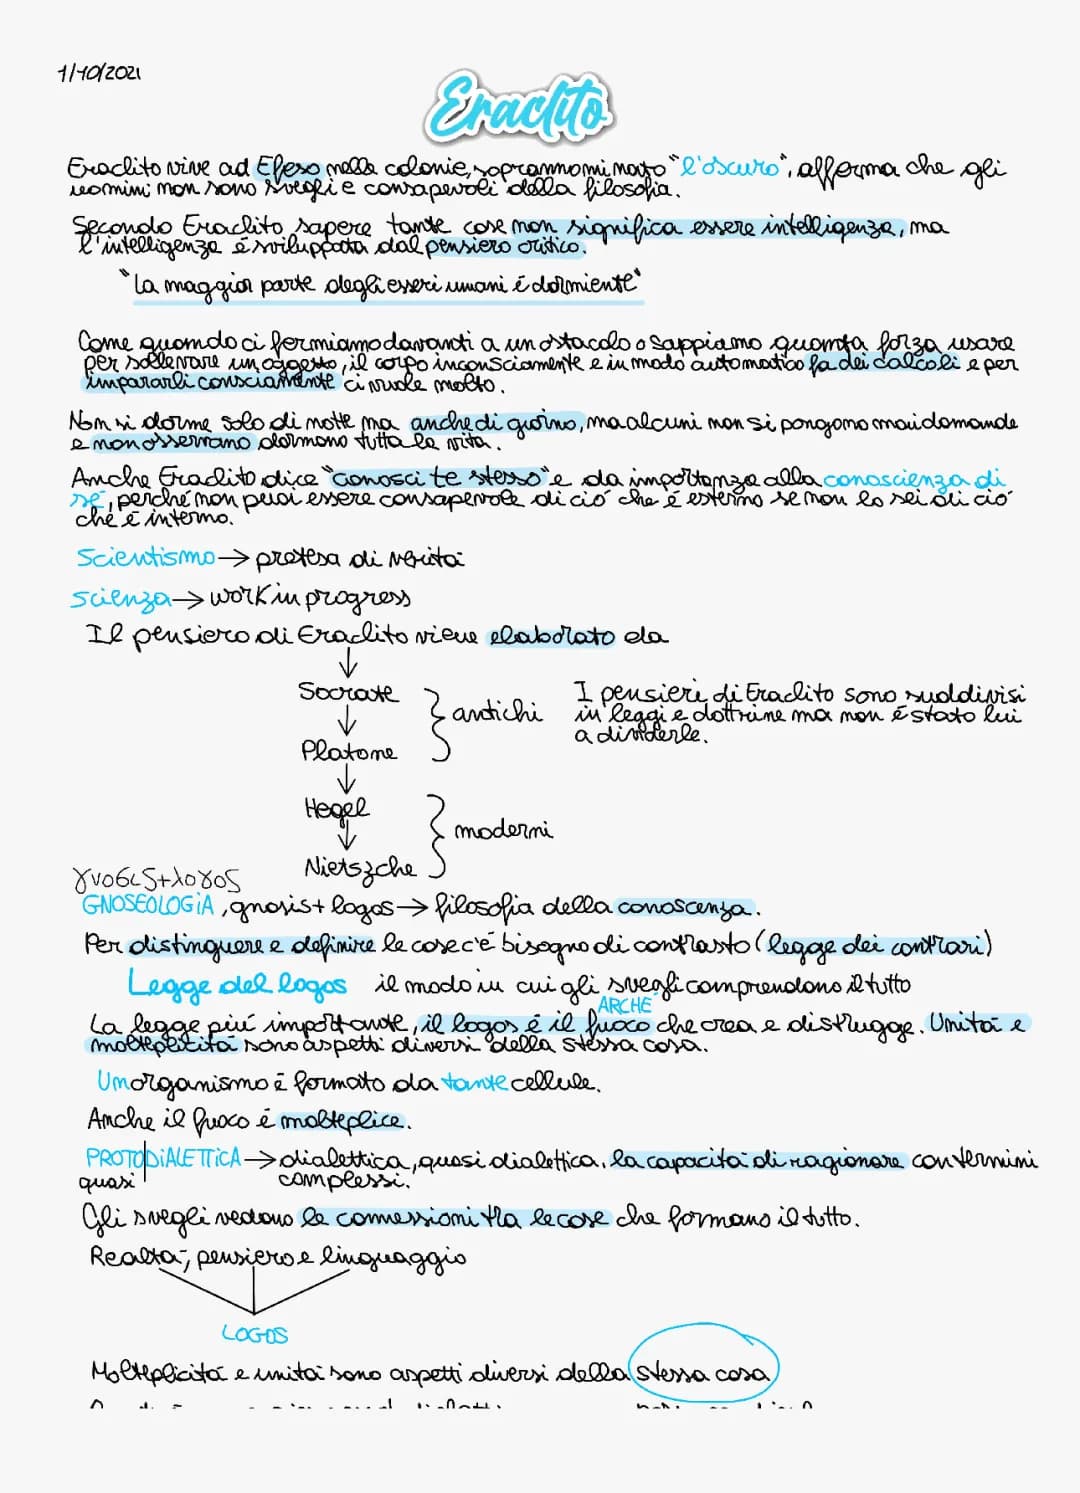 1/10/2021
Eraclito
Eraclito vive ad Efeso nelle colonie, soprannominato "l'oscuro", afferma che gli
uomini non sono svegli e consapevoli della filosofia.
Secondo Eraclito sapere tante cose non significa essere intelligenza, ma
l'intelligenza é sviluppata dal pensiero critico.
"La maggior parte degli esseri umani é dormiente"
Come quando ci fermiamo davanti a un ostacolo o sappiamo quanta forza usare
per sollevare un oggetto, il corpo inconsciamente e in modo automatico fa dei calcoli e per
impararli consciamente ci vuole molto.
Non si dorme solo di notte ma anche di giorno, ma alcuni non si pongono mai domande
e non osservano dormono tutta la vita.
Anche Eraclito dice "conosci te stesso" e da importanza alla conoscienza di
sé, perché non puoi essere consapevole di ció che é esterno se non lo sei di ció
che é interno.
Scientismo → pretesa di veritá
scienza → work in progress
Il pensiero di Eraclito viene elaborato da
↓
Socrate
↓
Platone
} antichi
I pensieri di Eraclito sono suddivisi
in leggi e dottrine ma non é stato lui
a dividerle.
↓
Hegel
↓
Nietszche
} moderni
γνοσις+λογος
GNOSEOLOGiA, gnosis + logos → filosofia della conoscenza.
Per distinguere e definire le cose c'é bisogno di contrasto (legge dei contrari)
Legge del logos il modo in cui gli svegli comprendono il tutto
ARCHÉ
La legge piú importante, il logos é il fuoco che crea e distrugge. Unitá e
molteplicitá sono aspetti diversi della stessa cosa.
Un organismo é formato da tante cellule.
Anche il fuoco é molteplice.
PROTODiALETTiCA → dialettica, quasi dialettica, la capacitá di ragionare con termini
quasi
complessi.
Gli svegli vedono le connessioni tra le cose che formano il tutto.
Realtá, pensiero e linguaggio
LOGOS
Molteplicitá e unitá sono aspetti diversi della stessa cosa